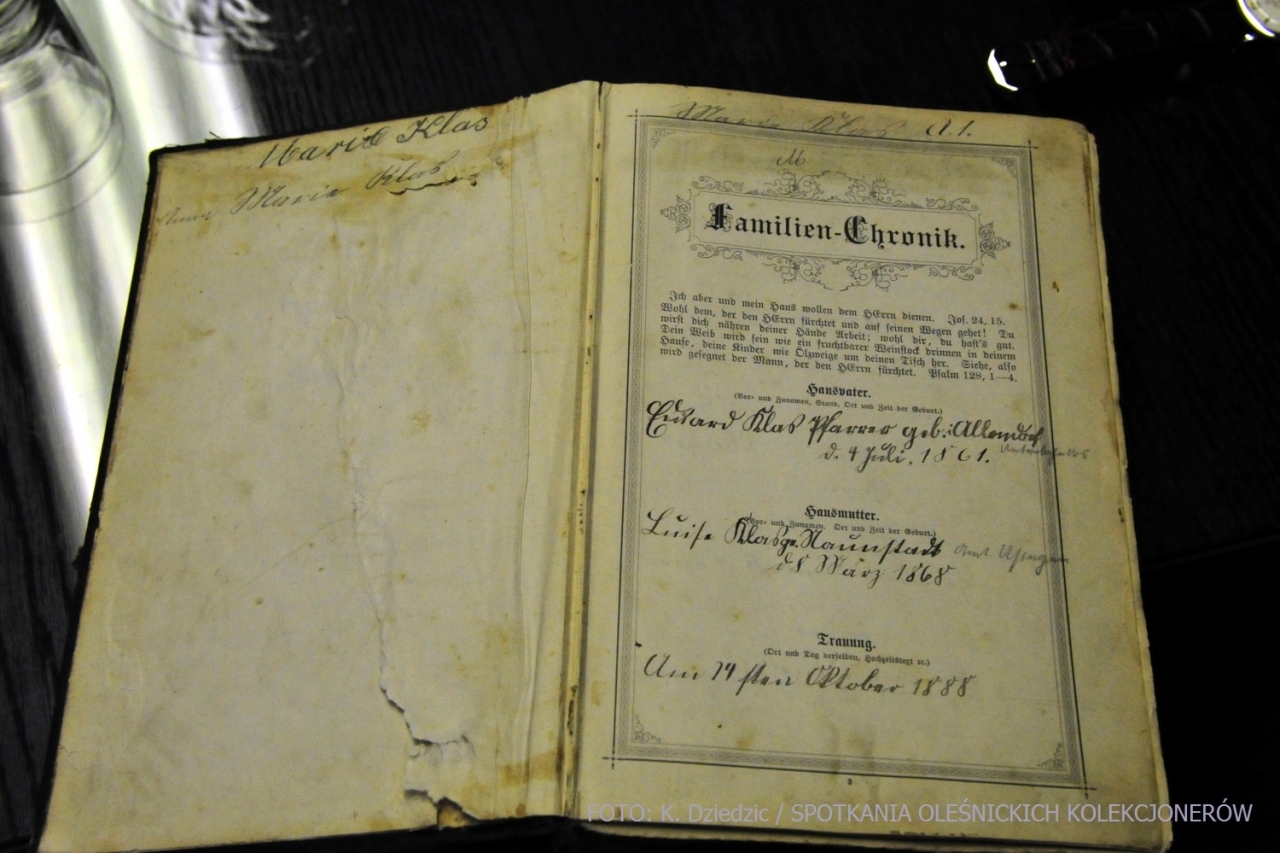 Marie Klas
Marie Klas
Marie Klas A. 1.
M
Familien-Chronik.
Ich aber und mein Haus wollen dem HErrn dienen. Jos. 24, 15.
Wohl dem, der den HErrn fürchtet und auf seinen Wegen gehet! Du
wirst dich nähren deiner Hände Arbeit; wohl dir, du hast's gut.
Dein Weib wird sein wie ein fruchtbarer Weinstock drinnen in deinem
Hause, deine Kinder wie Ölzweige um deinen Tisch her. Siehe, also
wird gesegnet der Mann, der den HErrn fürchtet. Psalm 128, 1—4.
Hausvater.
(Vor- und Zunamen, Stand, Ort und Zeit der Geburt.)
Eduard Klas Pfarrer geb. Allendorf
d. 4 Juli. 1861.
Hausmutter.
(Vor- und Zunamen, Ort und Zeit der Geburt.)
Luise Klas Naunstadt Amt Usingen
d 8 März 1868
Trauung.
(Ort und Tag derselben, Hochzeitstext etc.)
Am 14ten Oktober 1888
FOTO: K. Dziedzic / SPOTKANIA OLEŚNICKICH KOLEKCJONERÓW